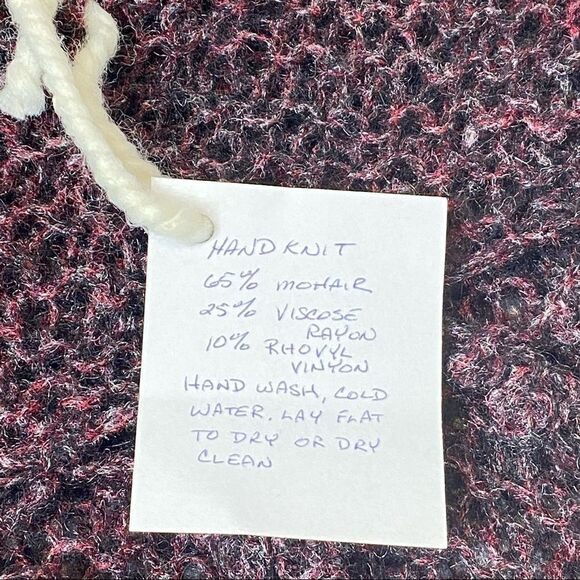 HAND KNIT
65% MOHAIR
25% VISCOSE
RAYON
10% RHOVYL
VINYON
HAND WASH, COLD
WATER. LAY FLAT
TO DRY OR DRY
CLEAN